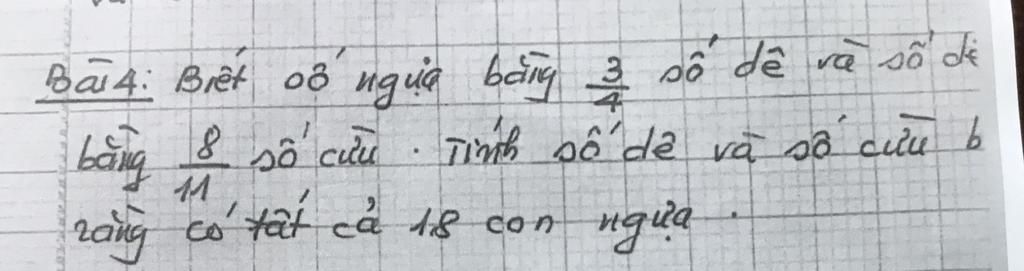 Bài 4: Biết số ngựa bằng 3/4 số dê và số dê
bằng 8/11 số cừu. Tính số dê và số cừu b
rằng có tất cả 18 con ngựa.